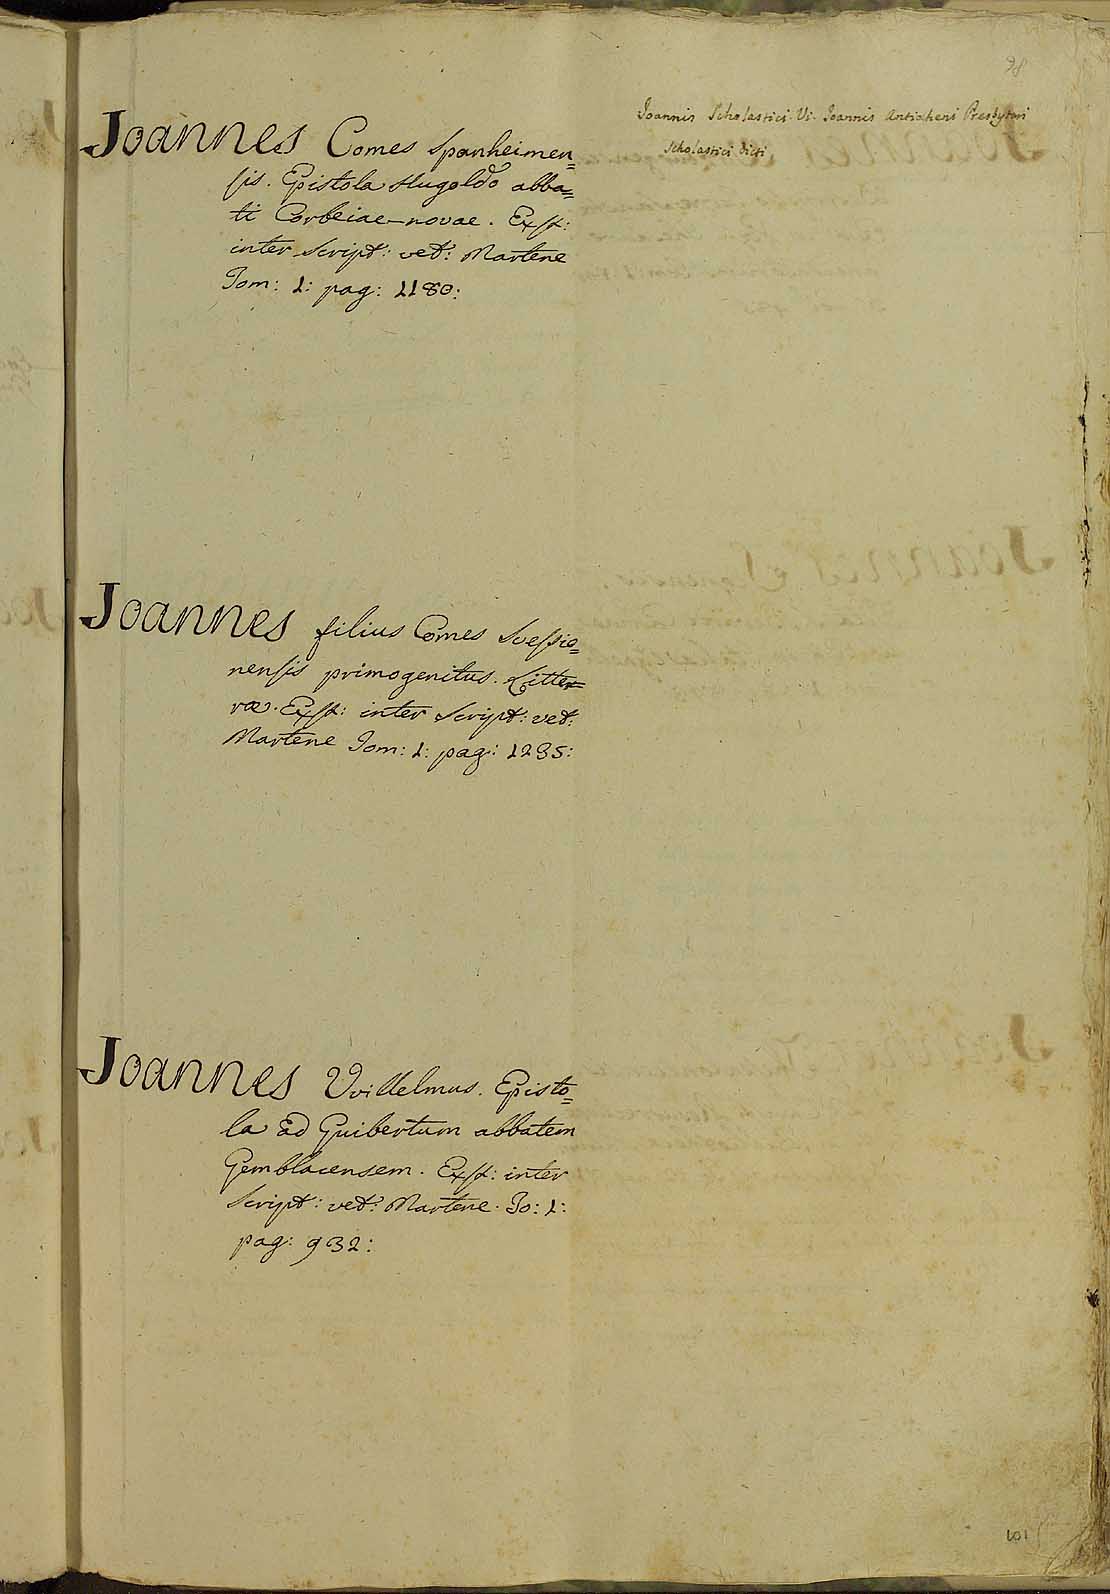 98
Joannis Scholastici Vi. Joannis Antiocheni Presbyteri
Scholastici dicti
Joannes Comes Spanheimen=
sis. Epistola Hugoldo abba=
ti Corbeiae-novae. Exst:
inter Script: vet: Martene
Tom: 1: pag: 1180:
Joannes filius Comes Svessio=
nensis primogenitus. Litte=
rae. Exst: inter Script: vet:
Martene Tom: 1: pag: 1235:
Joannes Vvillelmus. Episto=
la ad Guibertum abbatem
Gemblacensem. Exst: inter
Script: vet: Martene. To: 1:
pag: 932:
101